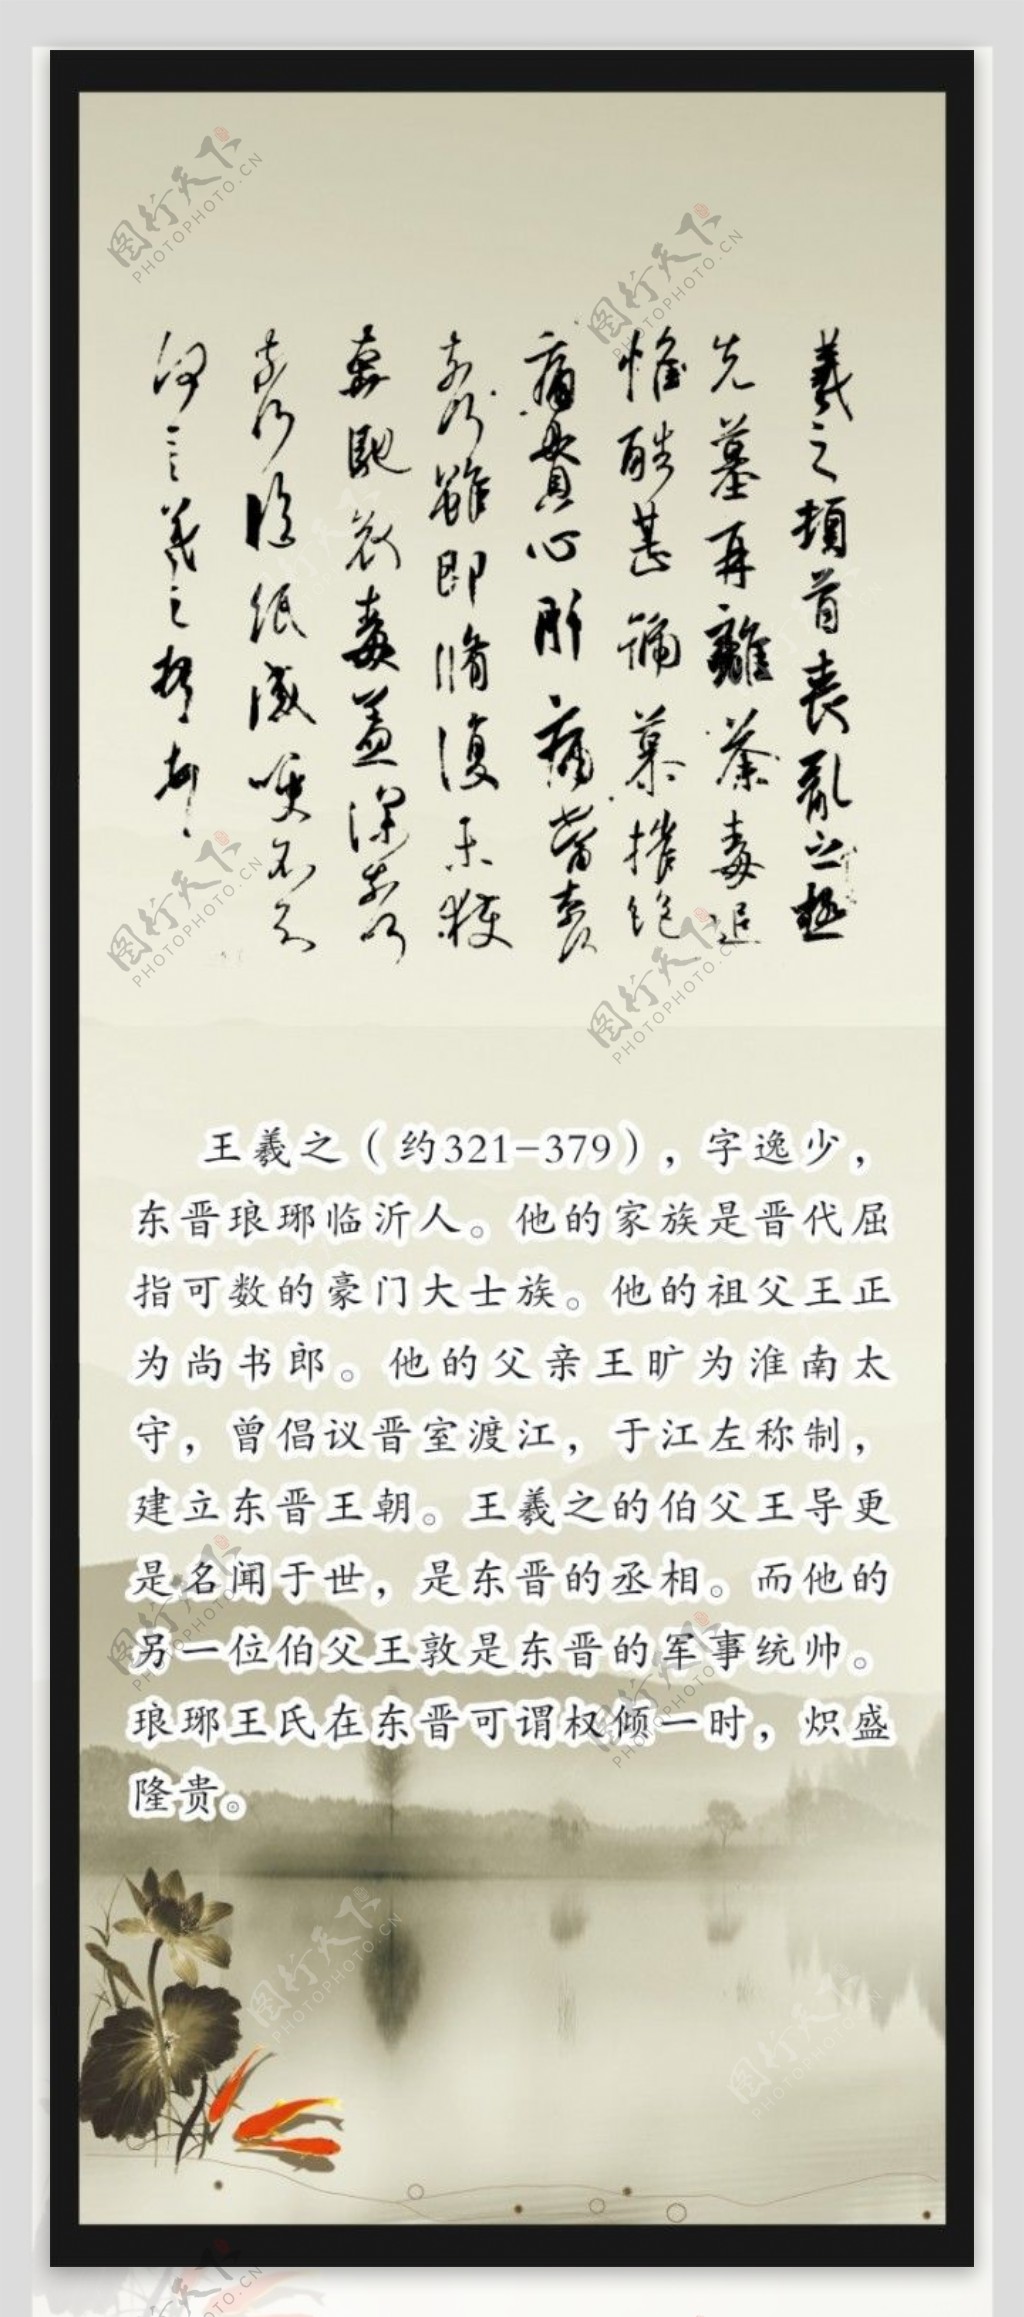 羲之頓首喪亂之極
先墓再離荼毒追
惟酷甚號慕摧絶
痛貫心肝痛當奈何
奈何雖即脩復未獲
奔馳哀毒益深奈何
奈何臨紙感哽不知
何言羲之頓首頓首
王羲之（约321-379），字逸少，
东晋琅琊临沂人。他的家族是晋代屈
指可数的豪门大士族。他的祖父王正
为尚书郎。他的父亲王旷为淮南太
守，曾倡议晋室渡江，于江左称制，
建立东晋王朝。王羲之的伯父王导更
是名闻于世，是东晋的丞相。而他的
另一位伯父王敦是东晋的军事统帅。
琅琊王氏在东晋可谓权倾一时，炽盛
隆贵。
图行天下
PHOTOPHOTO.CN